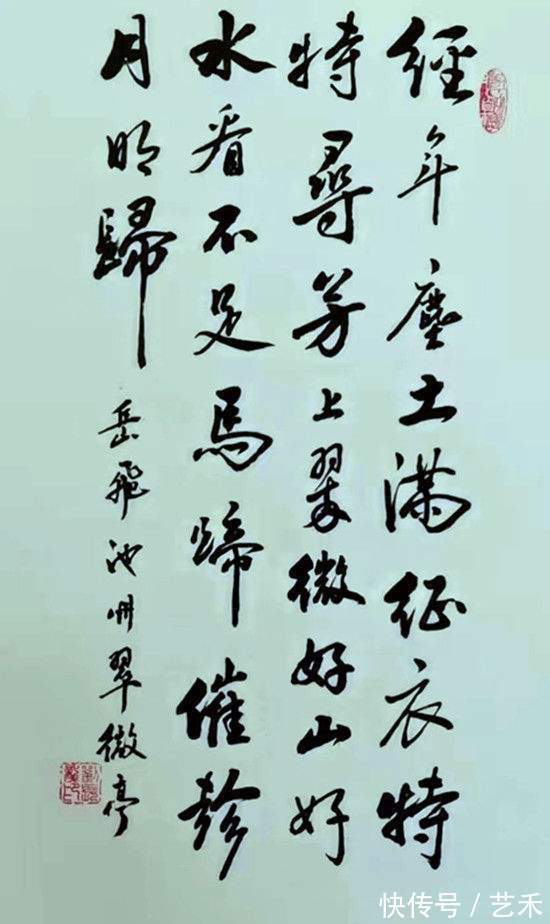 經年塵土滿征衣特
特尋芳上翠微好山好
水看不足馬蹄催趁
月明歸
岳飛池州翠微亭
快传号 / 艺禾